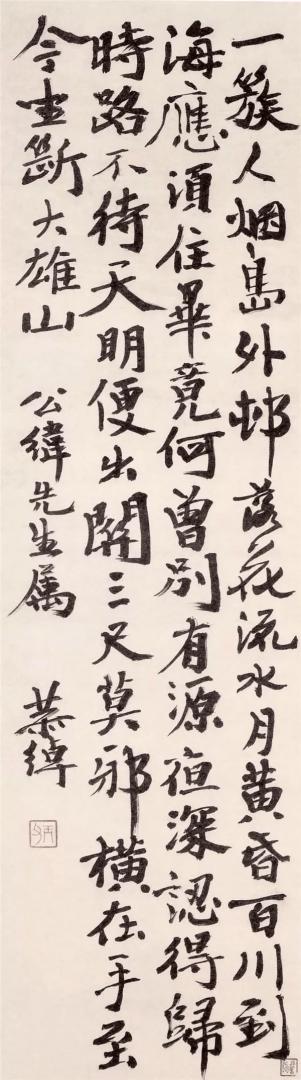 一簇人烟島外邨落花流水月黄昏百川到
海應須住畢竟何曾別有源夜深認得歸
時路不待天明便出關三尺莫邪橫在手至
今坐斷大雄山 公緯先生属 恭綽